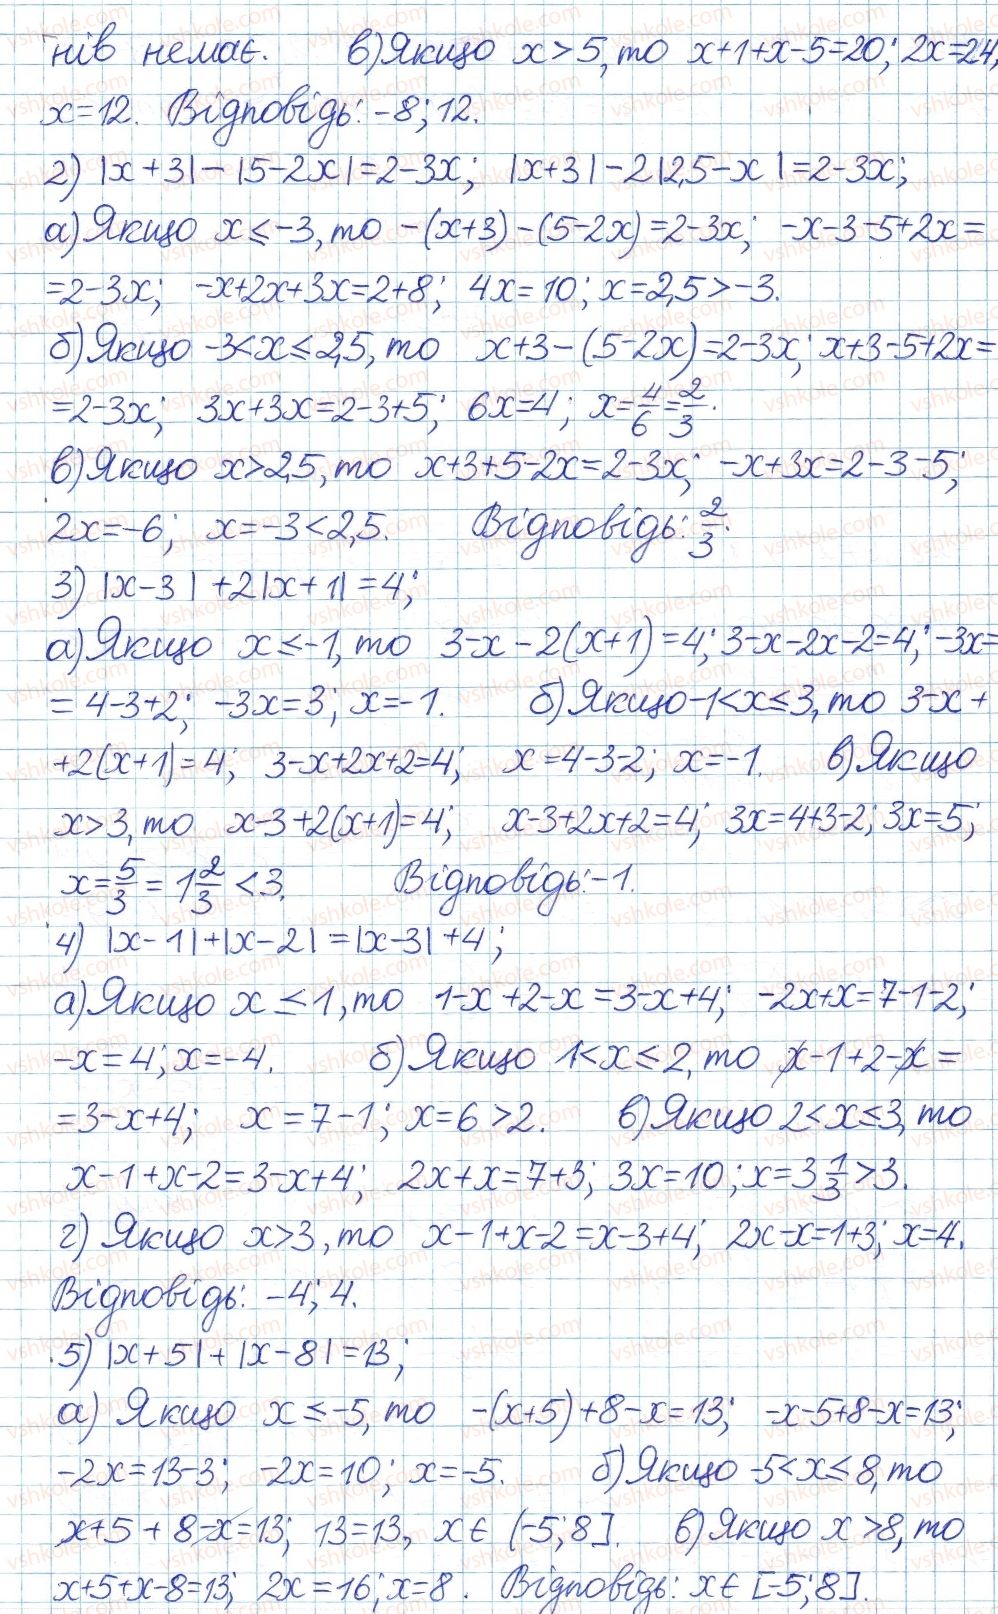 нів немає. в) Якщо x > 5, то x+1+x-5=20; 2x=24,
x=12. Відповідь: -8; 12.
2) |x+3|-|5-2x|=2-3x; |x+3|-2|2,5-x|=2-3x;
а) Якщо x ≤ -3, то -(x+3)-(5-2x)=2-3x; -x-3-5+2x=
=2-3x; -x+2x+3x=2+8; 4x=10; x=2,5>-3.
б) Якщо -3<x≤2,5, то x+3-(5-2x)=2-3x; x+3-5+2x=
=2-3x; 3x+3x=2-3+5; 6x=4; x=4/6=2/3.
в) Якщо x>2,5, то x+3+5-2x=2-3x; -x+3x=2-3-5;
2x=-6; x=-3<2,5. Відповідь: 2/3.
3) |x-3|+2|x+1|=4;
а) Якщо x≤-1, то 3-x-2(x+1)=4; 3-x-2x-2=4; -3x=
=4-3+2; -3x=3; x=-1. б) Якщо -1<x≤3, то 3-x+
+2(x+1)=4; 3-x+2x+2=4; x=4-3-2; x=-1. в) Якщо
x>3, то x-3+2(x+1)=4; x-3+2x+2=4; 3x=4+3-2; 3x=5;
x=5/3=1 2/3<3. Відповідь: -1.
4) |x-1|+|x-2|=|x-3|+4;
а) Якщо x≤1, то 1-x+2-x=3-x+4; -2x+x=7-1-2;
-x=4; x=-4. б) Якщо 1<x≤2, то x-1+2-x=
=3-x+4; x=7-1; x=6>2. в) Якщо 2<x≤3, то
x-1+x-2=3-x+4; 2x+x=7+3; 3x=10; x=3 1/3>3.
г) Якщо x>3, то x-1+x-2=x-3+4; 2x-x=1+3; x=4.
Відповідь: -4; 4.
5) |x+5|+|x-8|=13;
а) Якщо x≤-5, то -(x+5)+8-x=13; -x-5+8-x=13;
-2x=13-3; -2x=10; x=-5. б) Якщо -5<x≤8, то
x+5+8-x=13; 13=13, x∈(-5;8]. в) Якщо x>8, то
x+5+x-8=13; 2x=16; x=8. Відповідь: x∈[-5;8].